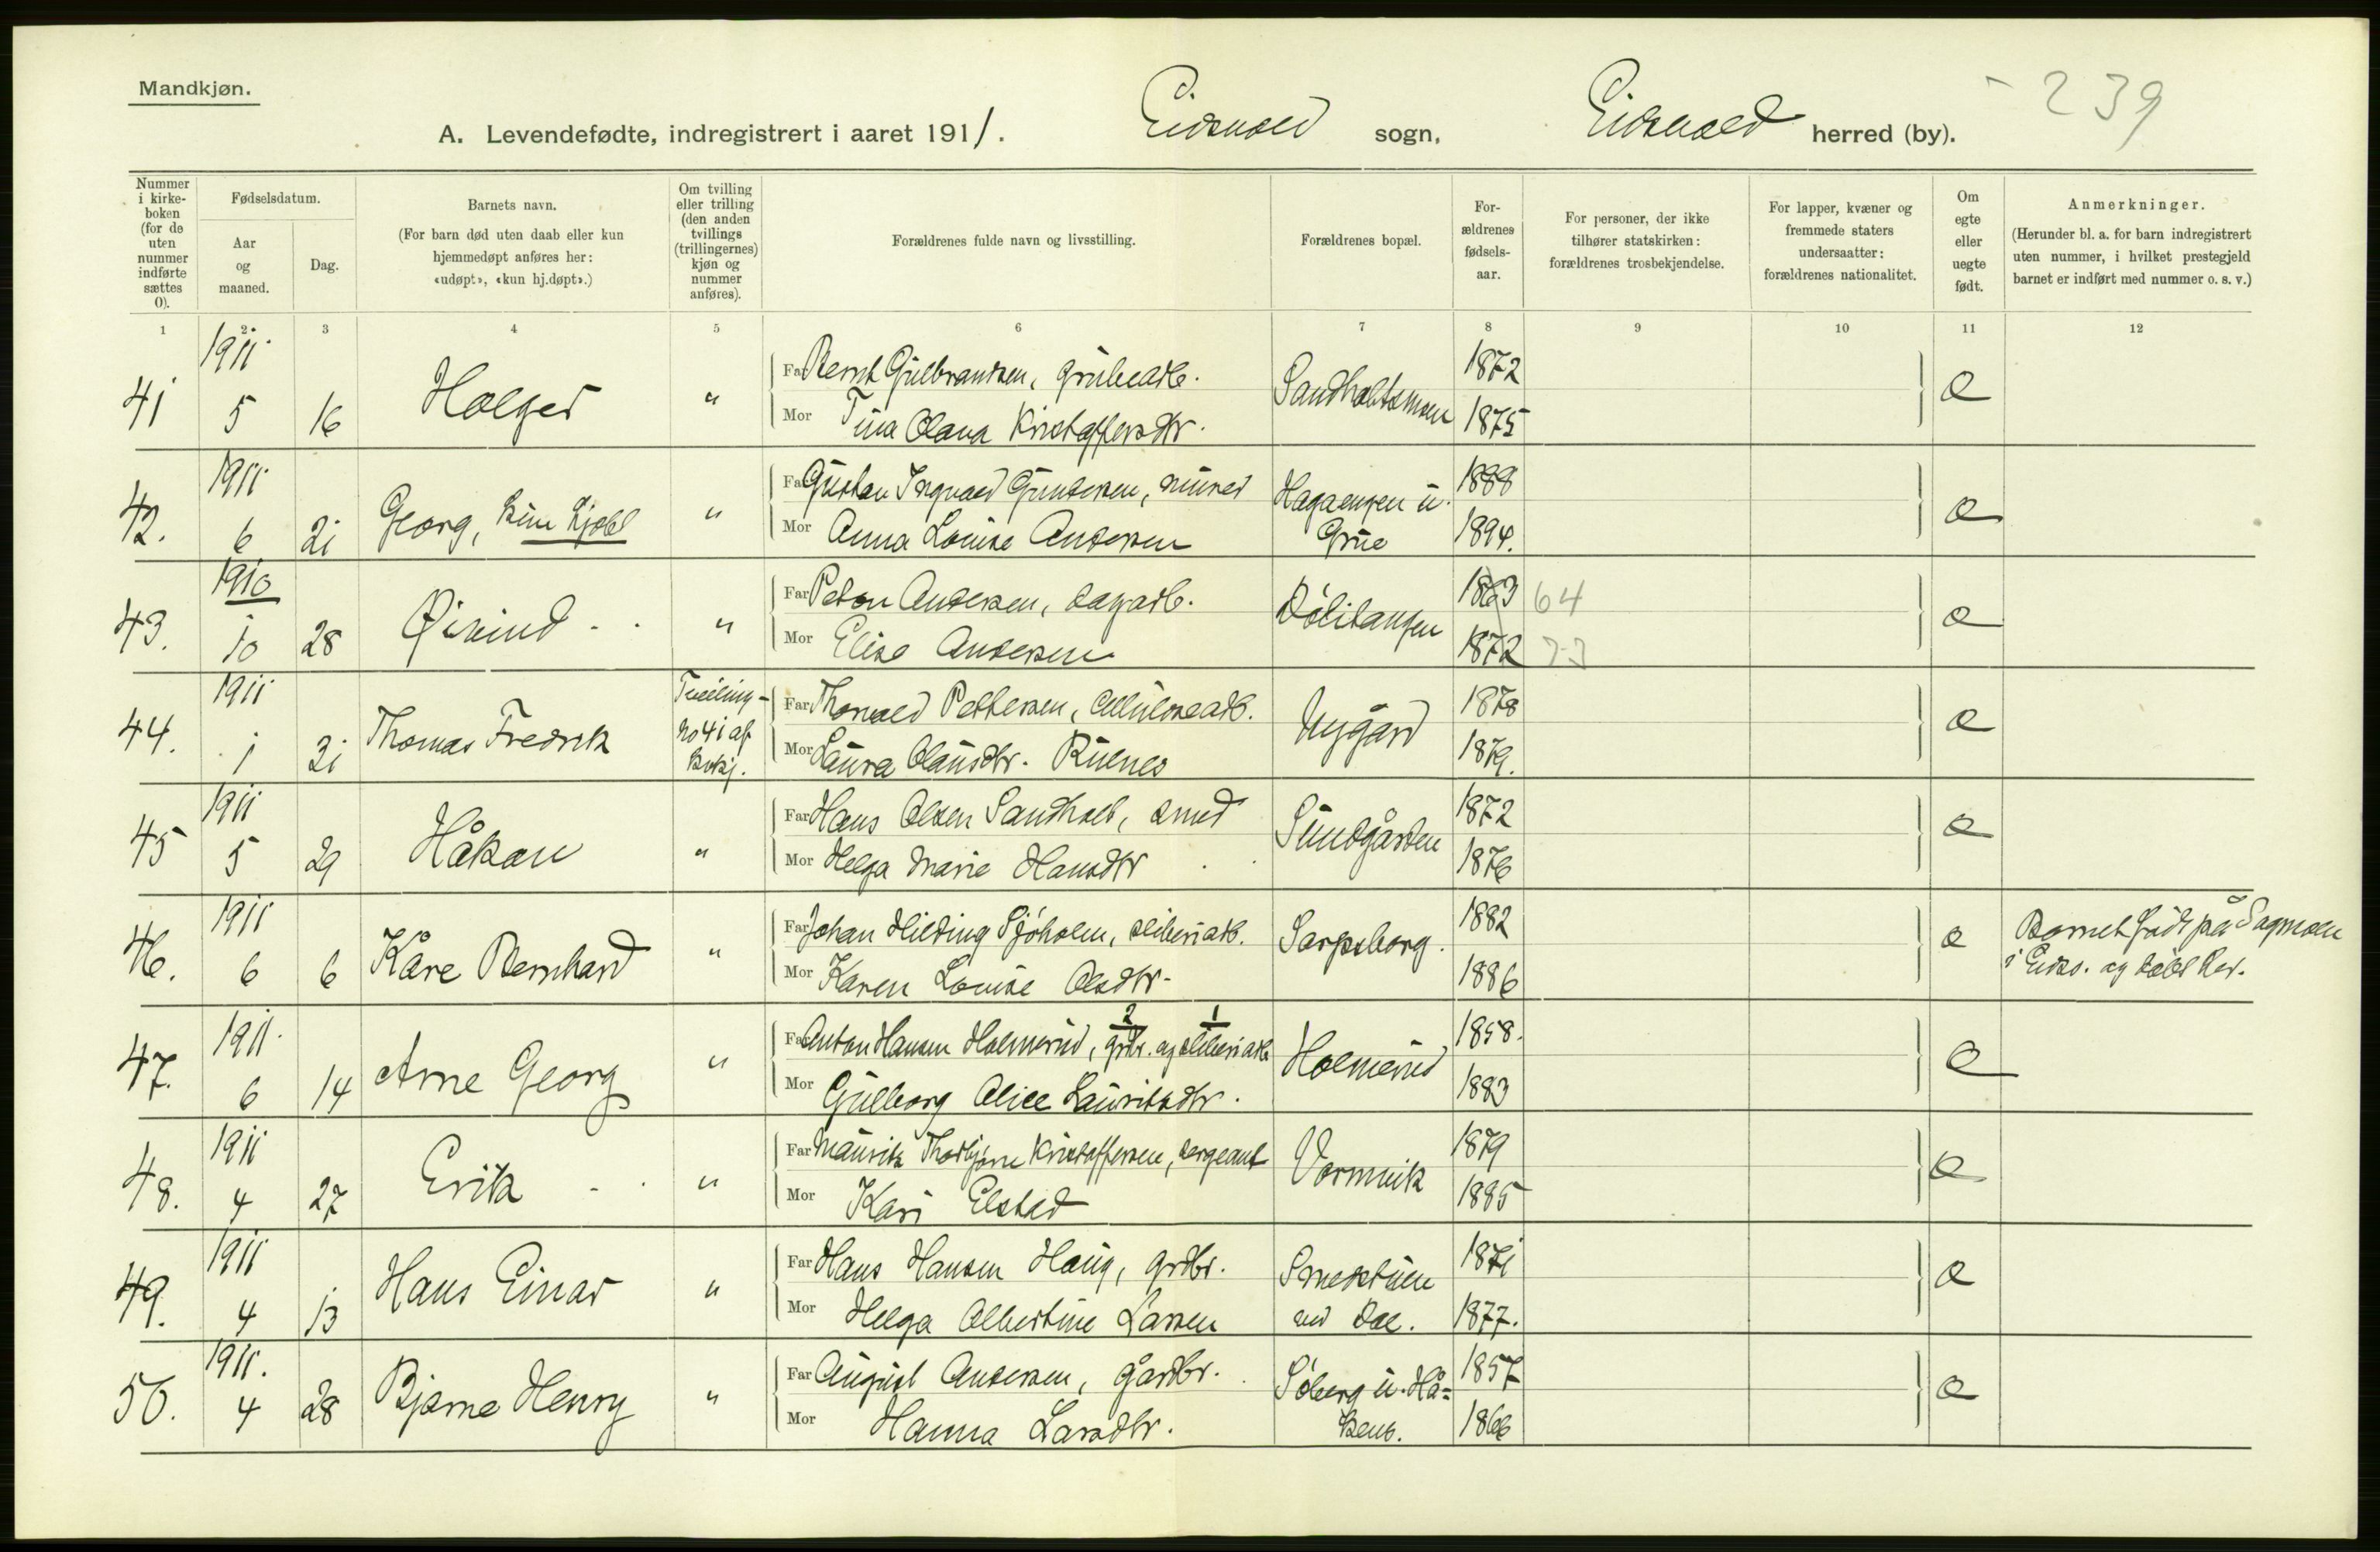 Mandkjøn.
A. Levendefødte, indregistrert i aaret 1911. Eidsvold sogn, Eidsvold herred (by).
239
Nummer i kirke-boken (for de uten nummer indførte sættes 0).
Fødselsdatum.
Aar og maaned.
Dag.
Barnets navn.
(For barn død uten daab eller kun hjemmedøpt anføres her: «udøpt», «kun hj.døpt».)
Om tvilling eller trilling (den anden tvillings (trillingernes) kjøn og nummer anføres).
Forældrenes fulde navn og livsstilling.
Forældrenes bopæl.
For-ældrenes fødsels-aar.
For personer, der ikke tilhører statskirken: forældrenes trosbekjendelse.
For lapper, kvæner og fremmede staters undersaatter: forældrenes nationalitet.
Om egte eller uegte født.
Anmerkninger.
(Herunder bl. a. for barn indregistrert uten nummer, i hvilket prestegjeld barnet er indført med nummer o. s. v.)
1 2 3 4 5 6 7 8 9 10 11 12
41 1911 5 16 Holger " Far Bernt Gulbrandsen, grubearb. Sandholtsmoen 1872 e
Mor Tina Olava Kristoffersdtr. 1875
42. 1911 6 21 Georg, kun hjdbt " Far Gustav Ingvald Gundersen, murer Hagaengen u. Grue 1888 e
Mor Anna Louise Andersen 1894.
43. 1910 10 28 Øivind " Far Peton Andersen, dagarb. Dølitangen 1863 64 e
Mor Elise Andersen 1872 73
44. 1911 1 31 Thomas Fredrik Tvilling no 41 af kvkj. Far Thorvald Pettersen, cellulosearb. Nygård 1878 e
Mor Laura Olausdtr. Ruenes 1879.
45 1911 5 29 Håkon " Far Hans Olsen Sandholt, smed Sundgården 1872 e
Mor Helga Marie Hansdtr 1876
46. 1911 6 6 Kåre Bernhard " Far Johan Hilding Sjöholm, sliberiarb. Sarpsborg. 1882 e Barnet født på Sagmoen
Mor Karen Louise Olsdtr. 1886 i Eidsv. og døbt her.
47. 1911. 6 14 Arne Georg " Far Anton Hansen Holmerud, 2 grbr. og 1 sliberiarb. Holmerud 1858. e
Mor Gulborg Alice Lauritsdtr. 1883
48. 1911 4 27 Erik " Far Mauritz Thorbjørn Kristoffersen, sergeant Vormvik 1879 e
Mor Kari Elstad 1885
49. 1911 4 13 Hans Einar " Far Hans Hansen Haug, grdbr. Smestuen 1871 e
Mor Helga Albertine Larsen ved Dal. 1877.
50. 1911. 4 28 Bjarne Henry " Far August Andersen, gårdbr. Söberg u. Hå= 1857 e
Mor Hanna Larsdtr. kens. 1866